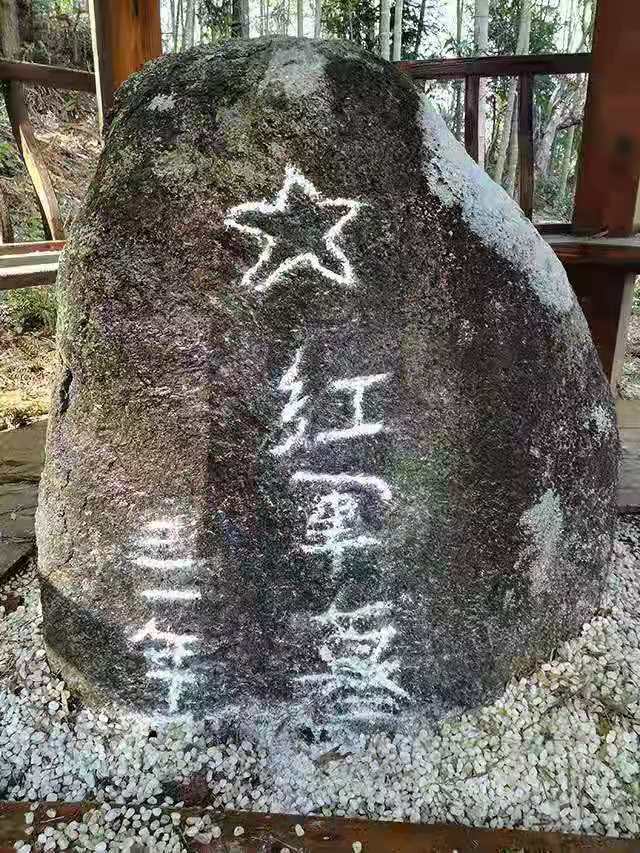 紅軍墓
三二年